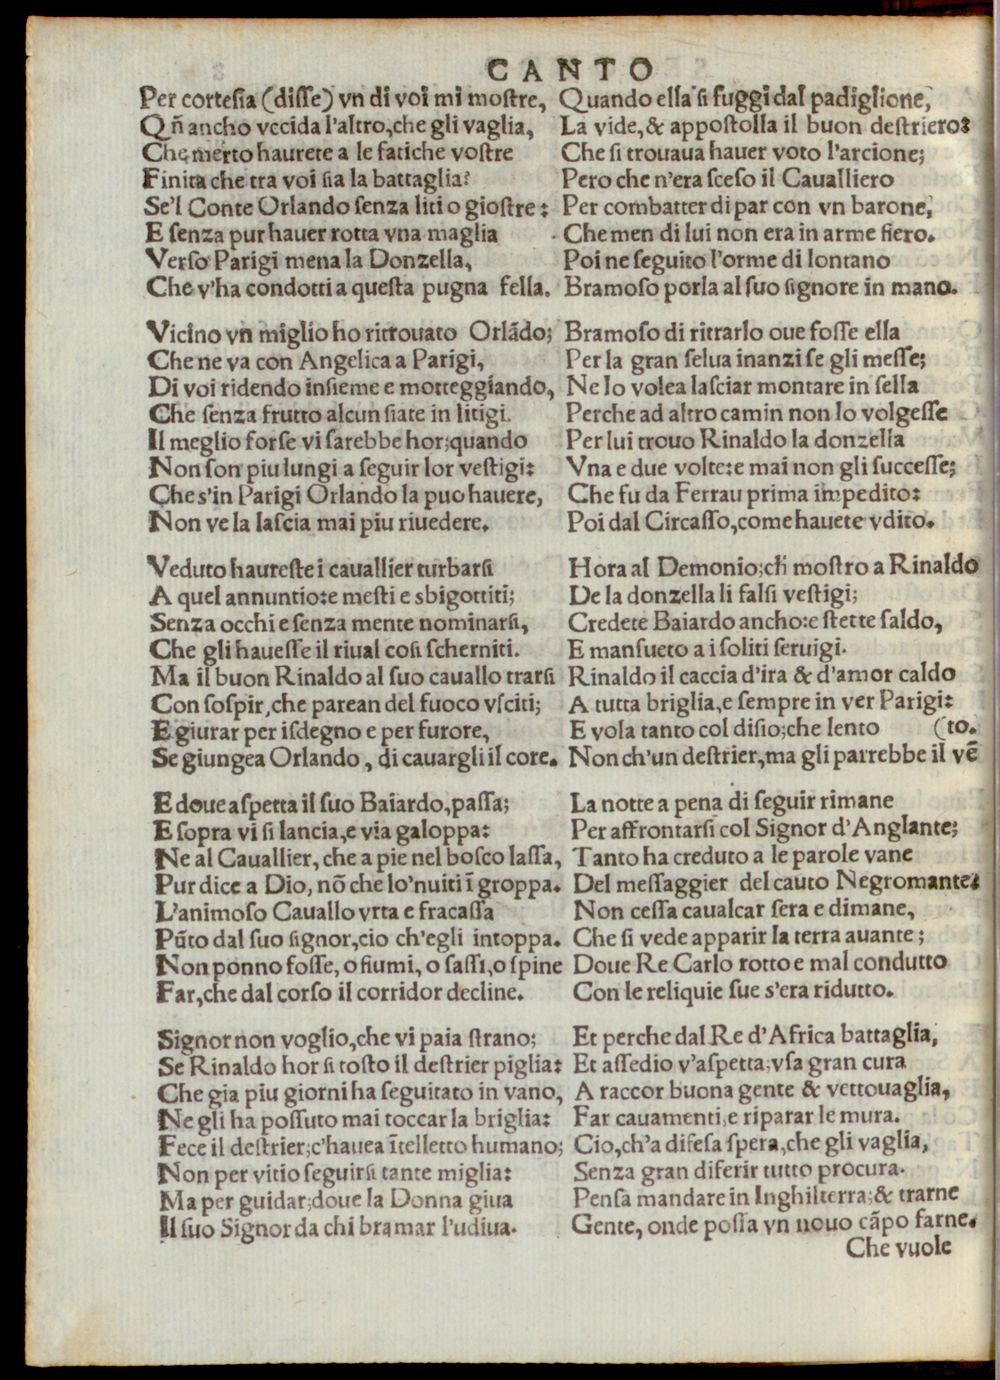 CANTO
Per cortesia (disse) vn di voi mi mostre,
Qñ ancho vccida l'altro, che gli vaglia,
Che merto haurete a le fatiche vostre
Finita che tra voi sia la battaglia?
Se'l Conte Orlando senza liti o giostre:
E senza pur hauer rotta vna maglia
Verso Parigi mena la Donzella,
Che v'ha condotti a questa pugna fella.
Vicino vn miglio ho ritrouato Orlãdo;
Che ne va con Angelica a Parigi,
Di voi ridendo insieme e motteggiando,
Che senza frutto alcun siate in litigi.
Il meglio forse vi sarebbe hor; quando
Non son piu lungi a seguir lor vestigi:
Che s'in Parigi Orlando la puo hauere,
Non ve la lascia mai piu riuedere.
Veduto haureste i cauallier turbarsi
A quel annuntio: e mesti e sbigottiti;
Senza occhi e senza mente nominarsi,
Che gli hauesse il riual cosi scherniti.
Ma il buon Rinaldo al suo cauallo trarsi
Con sospir, che parean del fuoco vsciti;
E giurar per isdegno e per furore,
Se giungea Orlando, di cauargli il core.
E doue aspetta il suo Baiardo, passa;
E sopra vi si lancia, e via galoppa:
Ne al Cauallier, che a pie nel bosco lassa,
Pur dice a Dio, nõ che lo'nuiti ĩ groppa.
L'animoso Cauallo vrta e fracassa
Pũto dal suo signor, cio ch'egli intoppa.
Non ponno fosse, o fiumi, o sassi, o spine
Far, che dal corso il corridor decline.
Signor non voglio, che vi paia strano;
Se Rinaldo hor si tosto il destrier piglia:
Che gia piu giorni ha seguitato in vano,
Ne gli ha possuto mai toccar la briglia:
Fece il destrier; c'hauea ĩtelletto humano;
Non per vitio seguirsi tante miglia:
Ma per guidar; doue la Donna giua
Il suo Signor da chi bramar l'udiua.
Quando ella si fuggi dal padiglione,
La vide, & appostolla il buon destriero:
Che si trouaua hauer voto l'arcione;
Pero che n'era sceso il Caualliero
Per combatter di par con vn barone,
Che men di lui non era in arme fiero.
Poi ne seguito l'orme di lontano
Bramoso porla al suo signore in mano.
Bramoso di ritrarlo oue fosse ella
Per la gran selua inanzi se gli messe;
Ne lo volea lasciar montare in sella
Perche ad altro camin non lo volgesse
Per lui trouo Rinaldo la donzella
Vna e due volte: e mai non gli successe;
Che fu da Ferrau prima impedito:
Poi dal Circasso, come hauete vdito.
Hora al Demonio; ch̃ mostro a Rinaldo
De la donzella li falsi vestigi;
Credete Baiardo ancho: e stette saldo,
E mansueto a i soliti seruigi.
Rinaldo il caccia d'ira & d'amor caldo
A tutta briglia, e sempre in ver Parigi:
E vola tanto col disio; che lento (to.
Non ch'un destrier, ma gli parrebbe il vẽ
La notte a pena di seguir rimane
Per affrontarsi col Signor d'Anglante;
Tanto ha creduto a le parole vane
Del messaggier del cauto Negromante:
Non cessa caualcar sera e dimane,
Che si vede apparir la terra auante;
Doue Re Carlo rotto e mal condutto
Con le reliquie sue s'era ridutto.
Et perche dal Re d'Africa battaglia,
Et assedio v'aspetta; vsa gran cura
A raccor buona gente & vettouaglia,
Far cauamenti, e riparar le mura.
Cio, ch'a difesa spera, che gli vaglia,
Senza gran diferir tutto procura.
Pensa mandare in Inghilterra; & trarne
Gente, onde possa vn nouo cãpo farne.
Che vuole